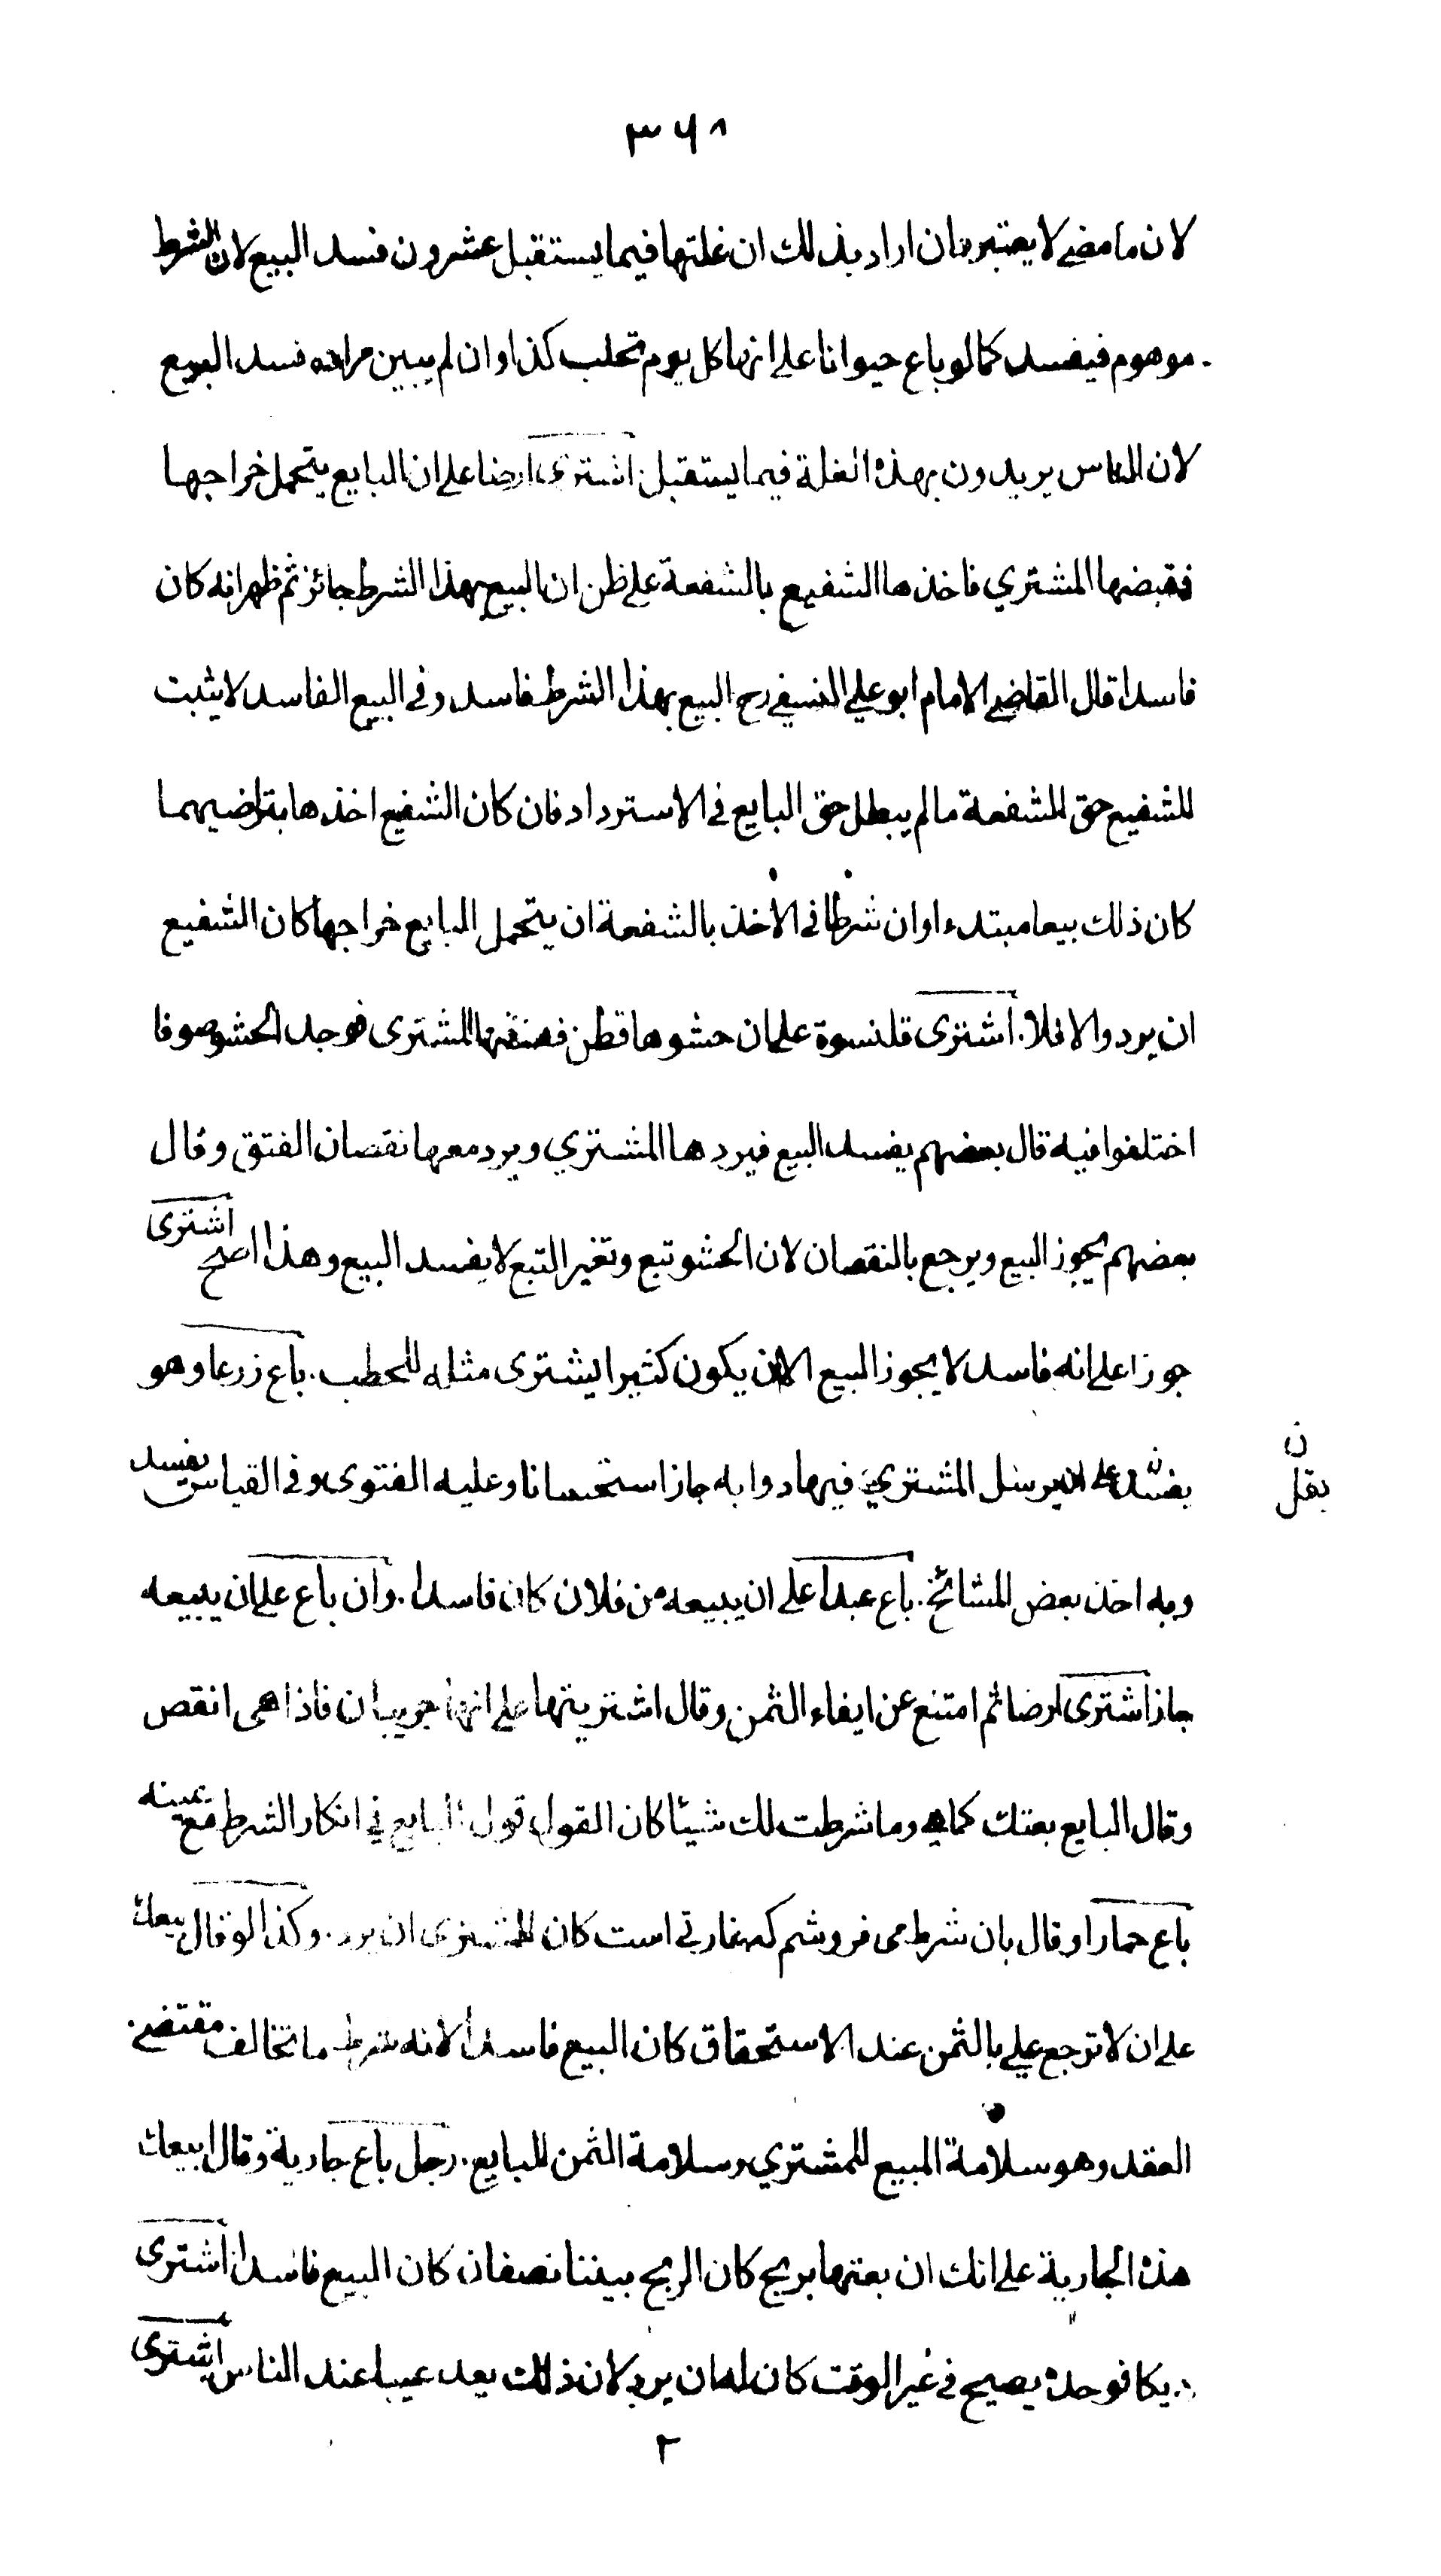 ٣٦٨
لان ما مضى لا يعتبر وان اراد بذلك ان غلتها فيما يستقبل عشرون فسد البيع لان الشرط
موهوم فيفسد كما لو باع حيوانا على انها كل يوم تحلب كذا وان لم يبين مراده فسد البيع
لان الناس يريدون بهذه الغلة فيما يستقبل اشترى ارضا على ان البايع يتحمل خراجها
فقبضها المشتري فاخذها الشفيع بالشفعة على ظن ان البيع بهذا الشرط جائز ثم ظهر انه كان
فاسدا قال القاضي الامام ابو علي النسفي رح البيع بهذا الشرط فاسد وفي البيع الفاسد لا يثبت
للشفيع حق الشفعة ما لم يبطل حق البايع في الاسترداد فان كان الشفيع اخذها بتراضيهما
كان ذلك بيعا مبتدءا وان شرطا في الاخذ بالشفعة ان يتحمل البايع خراجها كان الشفيع
ان يرد والا فلا. اشترى قلنسوة على ان حشوها قطن ففتقها المشترى فوجد الحشو صوفا
اختلفوا فيه قال بعضهم يفسد البيع فيردها المشتري ويرد معها نقصان الفتق وقال
بعضهم يجوز البيع ويرجع بالنقصان لان الحشو تبع وتغير التبع لا يفسد البيع وهذا اصح اشترى
جوزا على انه فاسد لا يجوز البيع الا ان يكون كثيرا يشترى مثله للحطب. باع زرعا وهو
على ان يرسل المشتري فيها دوابه جاز استحسانا وعليه الفتوى وفي القياس يفسد
ن
بقل
وبه اخذ بعض المشائخ. باع عبدا على ان يبيعه من فلان كان فاسدا. وان باع على ان يبيعه
جاز اشترى ارضا ثم امتنع عن ايفاء الثمن وقال اشتريتها على انها جريبان فاذا هى انقص
وقال البايع بعتك كما هي وما شرطت لك شيئا كان القول قول البايع في انكار الشرط مع يمينه
باع حمارا وقال بان شرط مى فروشم كه غارتى است كان للمشترى ان يرد. وكذا لو قال بيعك
على ان لا ترجع علي بالثمن عند الاستحقاق كان البيع فاسدا لانه شرط ما تخالف مقتضى
العقد وهو سلامة المبيع للمشتري وسلامة الثمن للبايع. رجل باع جارية وقال ابيعك
هذه الجارية على انك ان بعتها بربح كان الربح بيننا نصفان كان البيع فاسدا اشترى
ديكا فوجده يصيح في غير الوقت كان له ان يرد لان ذلك يعد عيبا عند الناس اشترى
٢